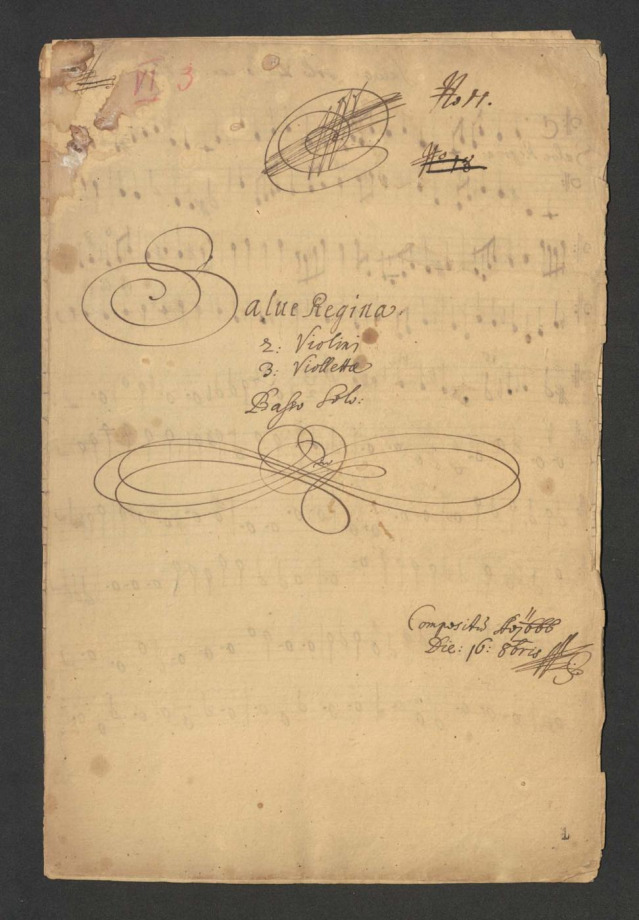 VI 3
No 11.
No 18
Salue Regina.
2: Violini
3: Violletta
Basso Solo:
Compositũ Ao 1666
Die: 16: 8bris
1